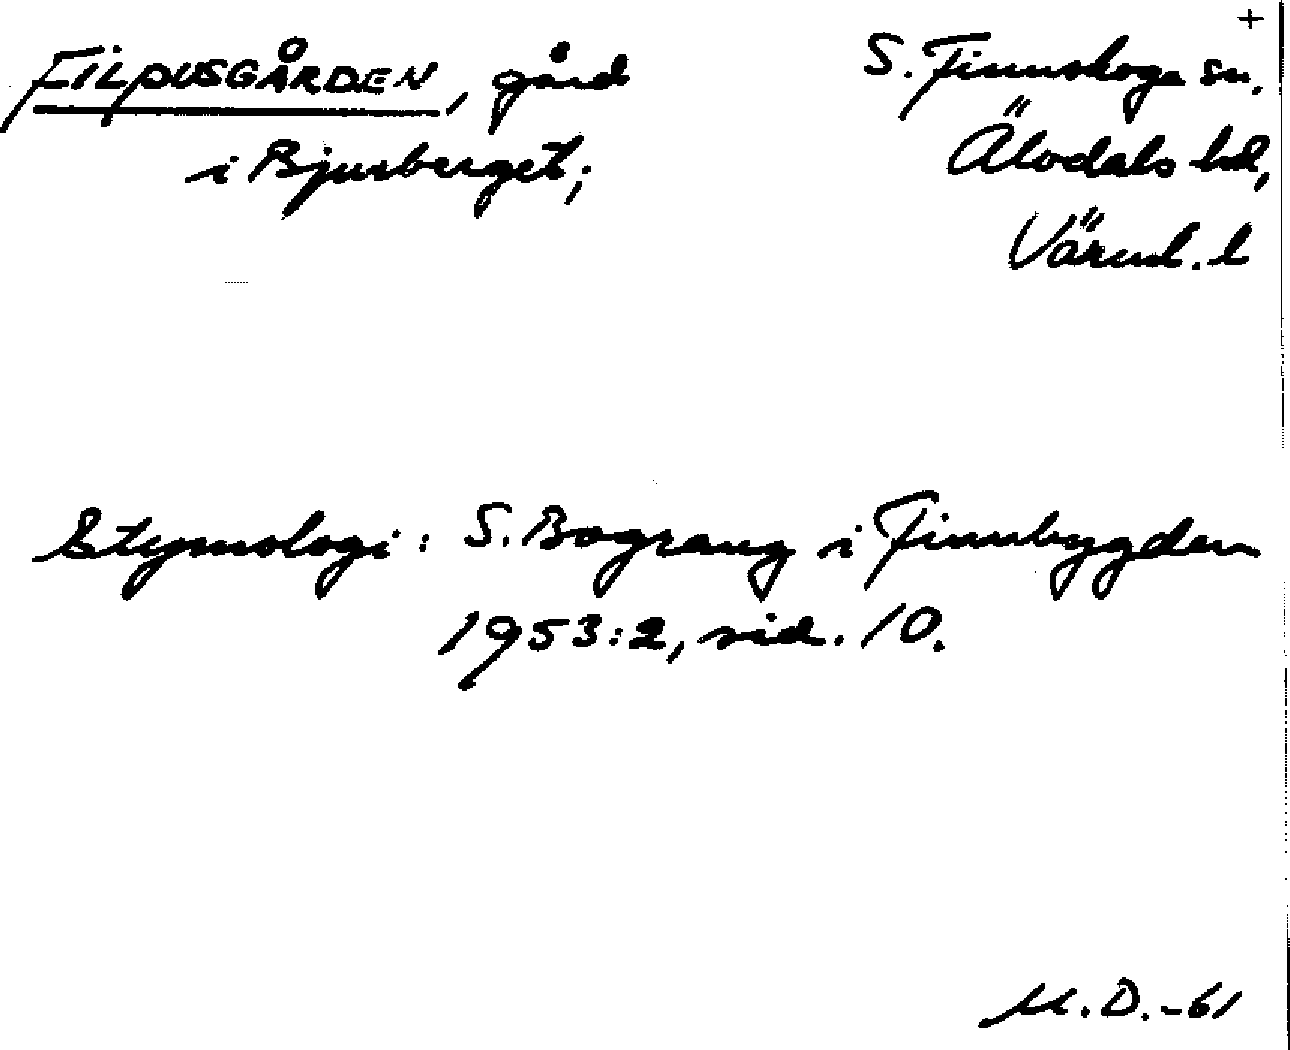 +
FILPUSGÅRDEN, gård
i Bjurberget;
S. Finnskoga sn,
Älvdals hd,
Värml. l
Etymologi: S. Bograng i Finnbygden
1953:2, sid. 10.
M.D.-61